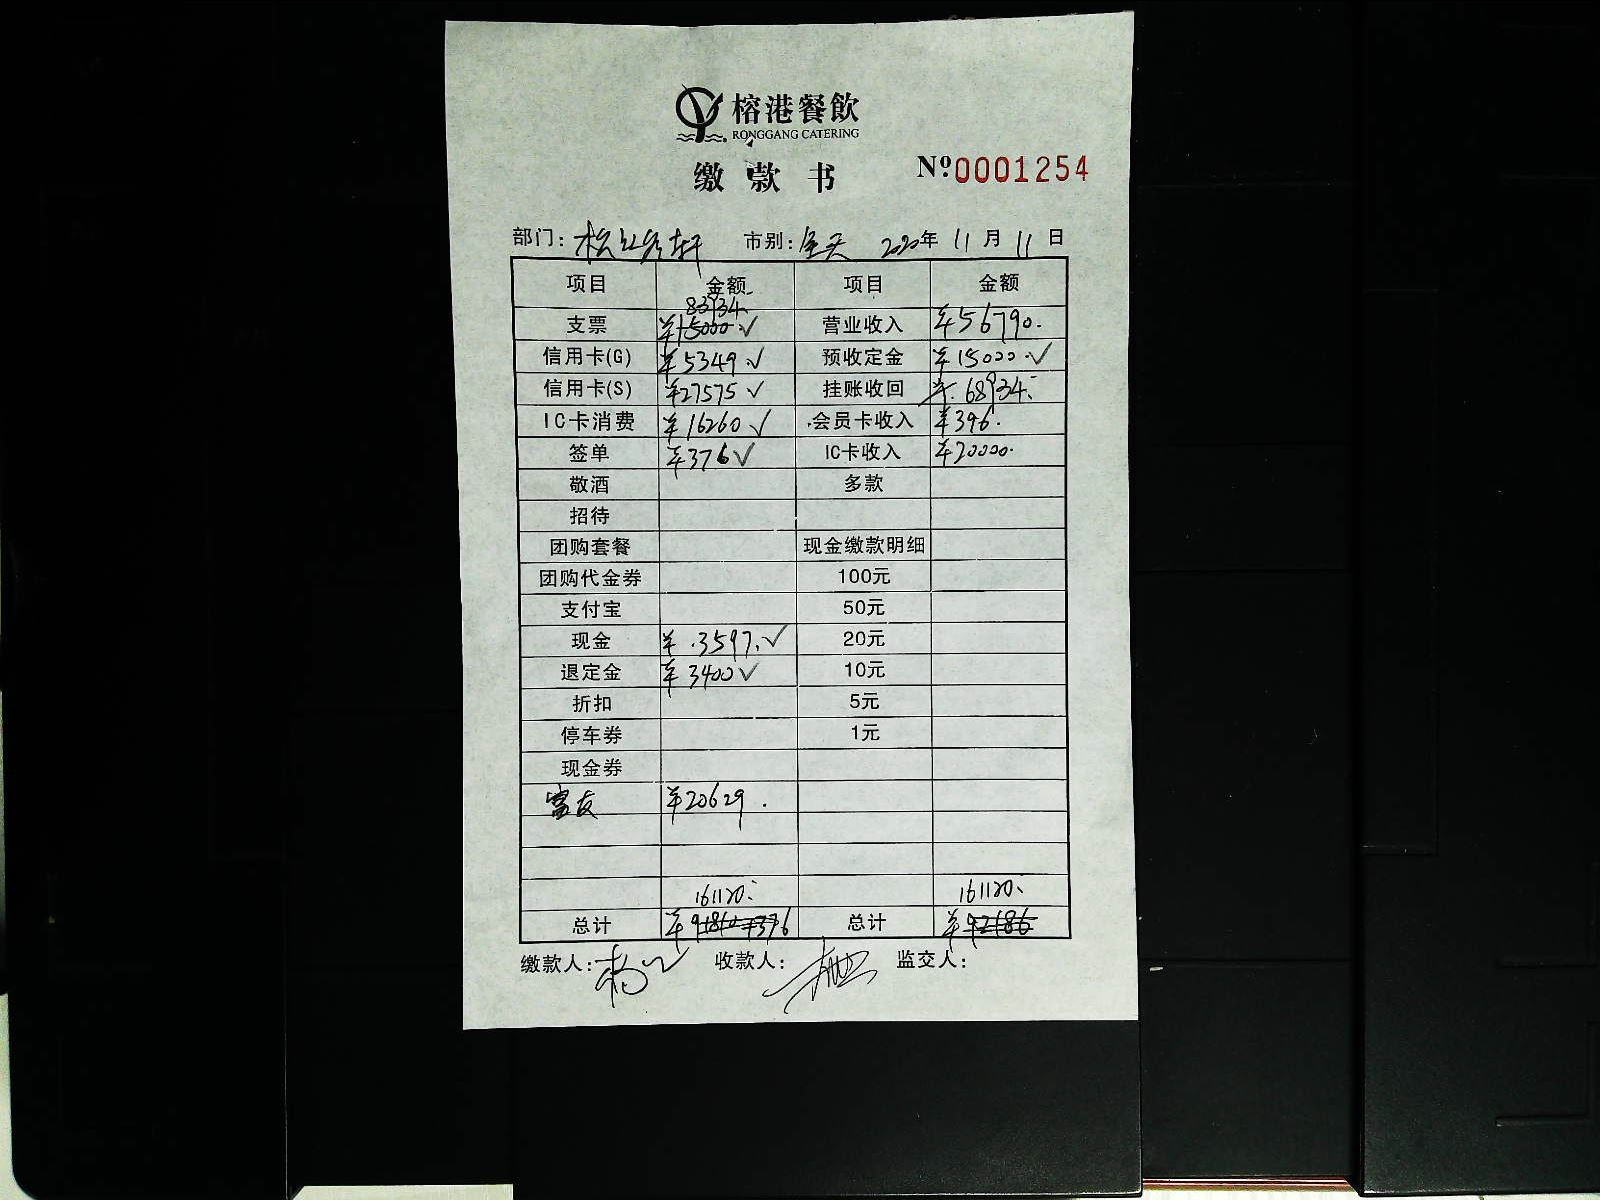 榕港餐飲
RONGGANG CATERING
缴款书
Nº0001254
部门: 市别: 全天 2020年 11月 11日
项目 金额 项目 金额
83934.
支票 ¥15000 ✓ 营业收入 ¥56790.
信用卡(G) ¥5349 ✓ 预收定金 ¥15000 ✓
信用卡(S) ¥27575 ✓ 挂账收回 ¥68934.
IC卡消费 ¥16260 ✓ 会员卡收入 ¥396.
签单 ¥376 ✓ IC卡收入 ¥20000.
敬酒 多款
招待
团购套餐 现金缴款明细
团购代金券 100元
支付宝 50元
现金 ¥3597. ✓ 20元
退定金 ¥3400 ✓ 10元
折扣 5元
停车券 1元
现金券
富友 ¥20629.
161120. 161120.
总计 ¥ 总计 ¥92186
缴款人: 收款人: 监交人: